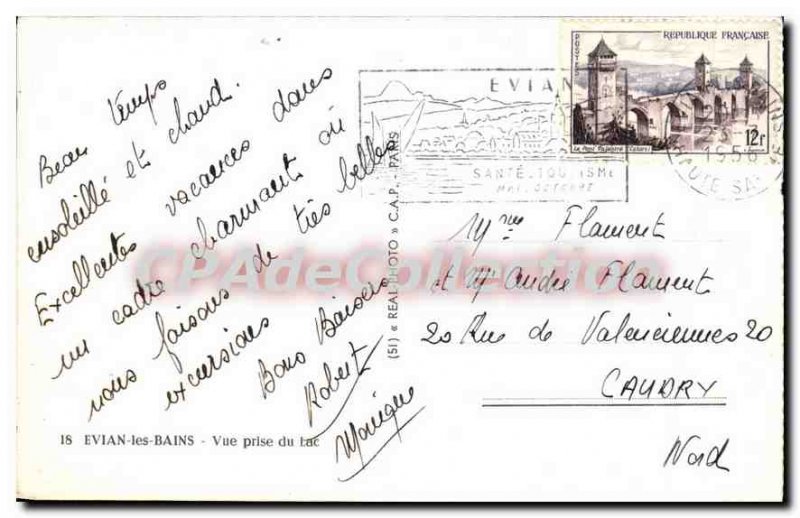 Beau temps
ensoleillé et chaud.
Excellentes vacances dans
un cadre charmant où
nous faisons de très belles
excursions
Bons Baisers
Robert
Monique
18 EVIAN-les-BAINS - Vue prise du Lac
(51) « REAL-PHOTO » C.A.P. - PARIS
EVIAN
SANTÉ-TOURISME
MAI-OCTOBRE
POSTES
REPUBLIQUE FRANÇAISE
12f
Le Pont Valentré Cahors
1956
HAUTE SAV
Mme Flament
et Mr André Flament
20 Rue de Valenciennes 20
CAUDRY
Nord
CPAdeCollection